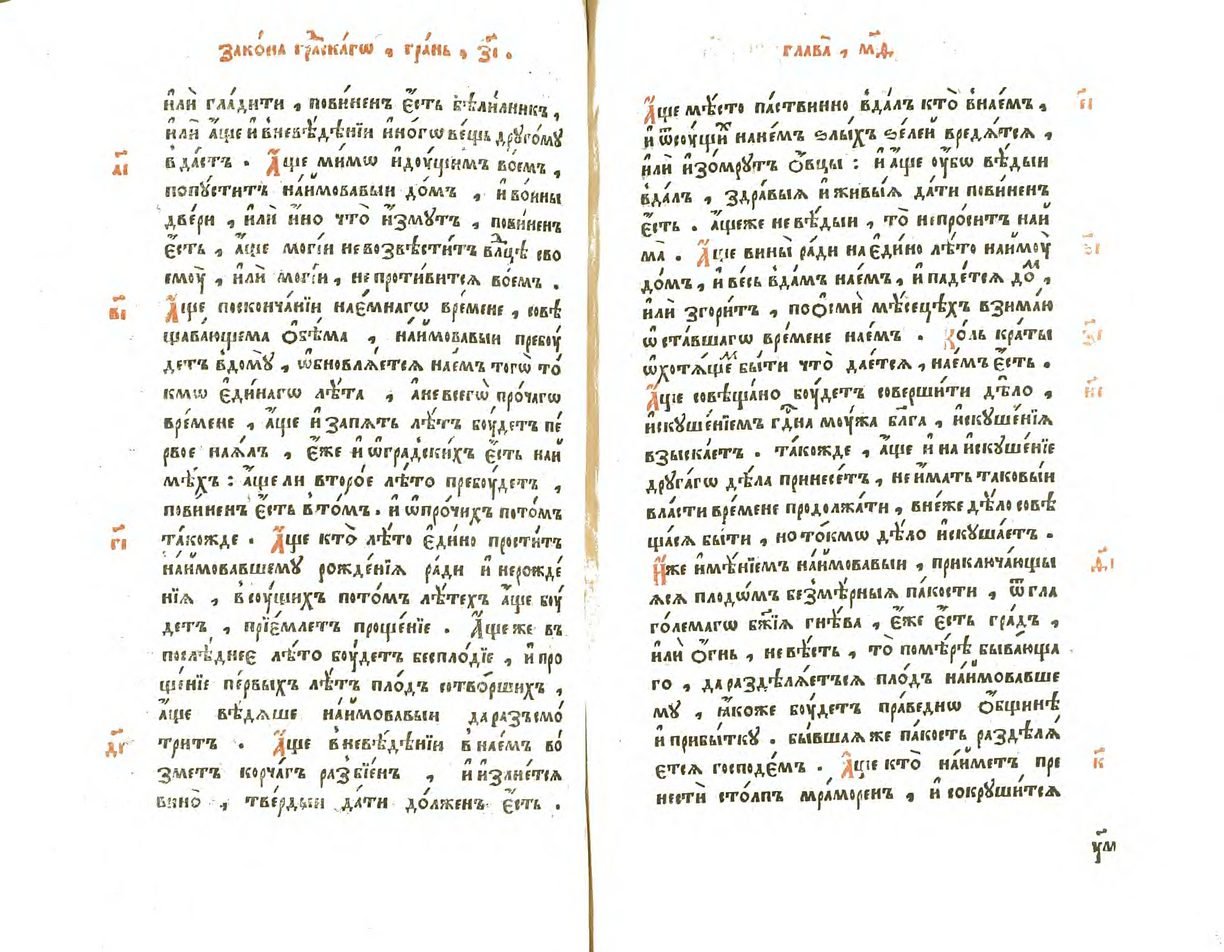 Зако́на гра́дскагѡ , гра́нь , з҃і .
и҆лѝ гла́дити , пови́ненъ є҆́сть бѣли́лникъ ,
и҆лѝ а҆́ще и҆ вневѣ́дѣнїи и҆но́гѡ ве́щь друго́му
вда́стъ . А҆́ще ми́мѡ и҆доу́щимъ во́емъ ,
попꙋ́ститъ наи҆мова́выи до́мъ , и҆ во́ины
две́ри , и҆лѝ и҆́но что̀ и҆́змутъ , пови́ненъ
є҆́сть , а҆́ще мо́гїи невозвѣсти́тъ влⷣцѣ сво
емоу̀ , и҆лѝ мо́гїи , непроти́вится во́емъ .
А҆́ще посконча́нїи нае́мнагѡ вре́мене , совѣ
щава́ющема ѻ҆бѣ́ма , наи҆мова́выи пребоу́
детъ вдомꙋ̀ , ѡ҆бновлѧ́ется нае́мъ тогѡ̀ то́
кмѡ є҆ди́нагѡ лѣ́та , а҆невсегѡ̀ про́чагѡ
вре́мене , а҆́ще и҆ запѧ́ть лѣ́тъ боу́детъ пе́
рвое наѧ́лъ , є҆́же и҆ ѡ҆гра́дскихъ є҆́сть наи
мѣ́хъ : а҆́ще ли второ́е лѣ́то пребоу́детъ ,
пови́ненъ є҆́сть вто́мъ . и҆ ѡ҆про́чихъ пото́мъ
та́кожде . А҆́ще кто̀ лѣ́то є҆ди́но прости́тъ
наи҆мова́вшему рожде́нїѧ ра́ди и҆ нерожде́
нїѧ , всоу́щихъ пото́мъ лѣ́техъ а҆́ще боу́
детъ , прїе́млетъ проще́нїе . А҆́ще же въ
послѣ́днее лѣ́то боу́детъ беспло́дїе , и҆ про
ще́нїе пе́рвыхъ лѣ́тъ пло́дъ сотво́ршихъ ,
а҆́ще вѣ́дѧше наи҆мова́выи да разъсмо́
тритъ . А҆́ще вневѣ́дѣнїи внае́мъ во́
зметъ корча́гъ разбїе́нъ , и҆ и҆злїе́тся
вино̀ , тве́рдыи да́ти до́лженъ є҆́сть .
а҃і
в҃і
г҃і
д҃і
глава̀ , м҃д .
А҆́ще мѣ́сто па́ствинно вда́лъ кто̀ внае́мъ ,
и҆ ѿсоу́щихъ нане́мъ ѕлы́хъ ѕе́леи вредѧ́тся ,
и҆лѝ и҆зо́мрутъ ѻ҆́вцы : и҆ а҆́ще оу҆́бѡ вѣ́дыи
вда́лъ , здра́выѧ и҆ живы́ѧ да́ти пови́ненъ
є҆́сть . а҆́щеже невѣ́дыи , то̀ непро́ситъ наи
ма̀ . А҆́ще вины̀ ра́ди на є҆ди́но лѣ́то наимоу̀
до́мъ , и҆ весь вда́мъ нае́мъ , и҆ паде́тся до́мъ ,
и҆лѝ згори́тъ , поѻ҆сми̑ мѣ́сецѣхъ взима́ю
ѡ҆ста́вшагѡ вре́мене нае́мъ . Ко́ль кра́ты
ѡ҆хотѧ́щемъ бы́ти что̀ дае́тся , нае́мъ є҆́сть .
А҆́ще совѣща́но боу́детъ соверши́ти дѣ́ло ,
и҆скуше́нїемъ гдⷭ҇на моу́жа бл҃га , и҆скуше́нїѧ
взыска́етъ . та́кожде , а҆́ще и҆ на и҆скуше́нїе
друга́гѡ дѣ́ла принесе́тъ , не и҆́мать таковы́и
вла́сти вре́мене продолжа́ти , вне́же дѣ́ло совѣ
ща́ся бы́ти , но то́кмѡ дѣ́ло и҆скуша́етъ .
И҆́же и҆мѣ́нїемъ наи҆мова́выи , приключа́ющы
ѧся плодѡ́мъ безмѣ́рныѧ па́кости , ѿ гла
го́лемагѡ бж҃їѧ гнѣ́ва , є҆́же є҆́сть гра́дъ ,
и҆лѝ ѻ҆́гнь , невѣ́сть , то̀ помѣ́рѣ быва́юща
го , да раздѣлѧ́етъся пло́дъ наи҆мова́вше
му , ꙗ҆́коже боу́детъ пра́веднѡ ѻ҆́бщинѣ
и҆ прибы́тку . бы́вшаѧ же па́кость раздѣлѧ́
ется господе́мъ . А҆́ще кто̀ наи́метъ пре
нестѝ сто́лпъ мра́моренъ , и҆ сокруши́тся
є҃і
ѕ҃і
з҃і
и҃і
ѳ҃і
к҃
у҃м